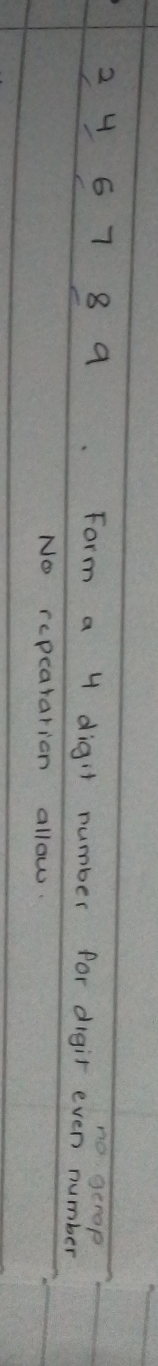 2 4 6 7 8 9 . Form a 4 digit number for digit even number
no genap
No repeatation allow.